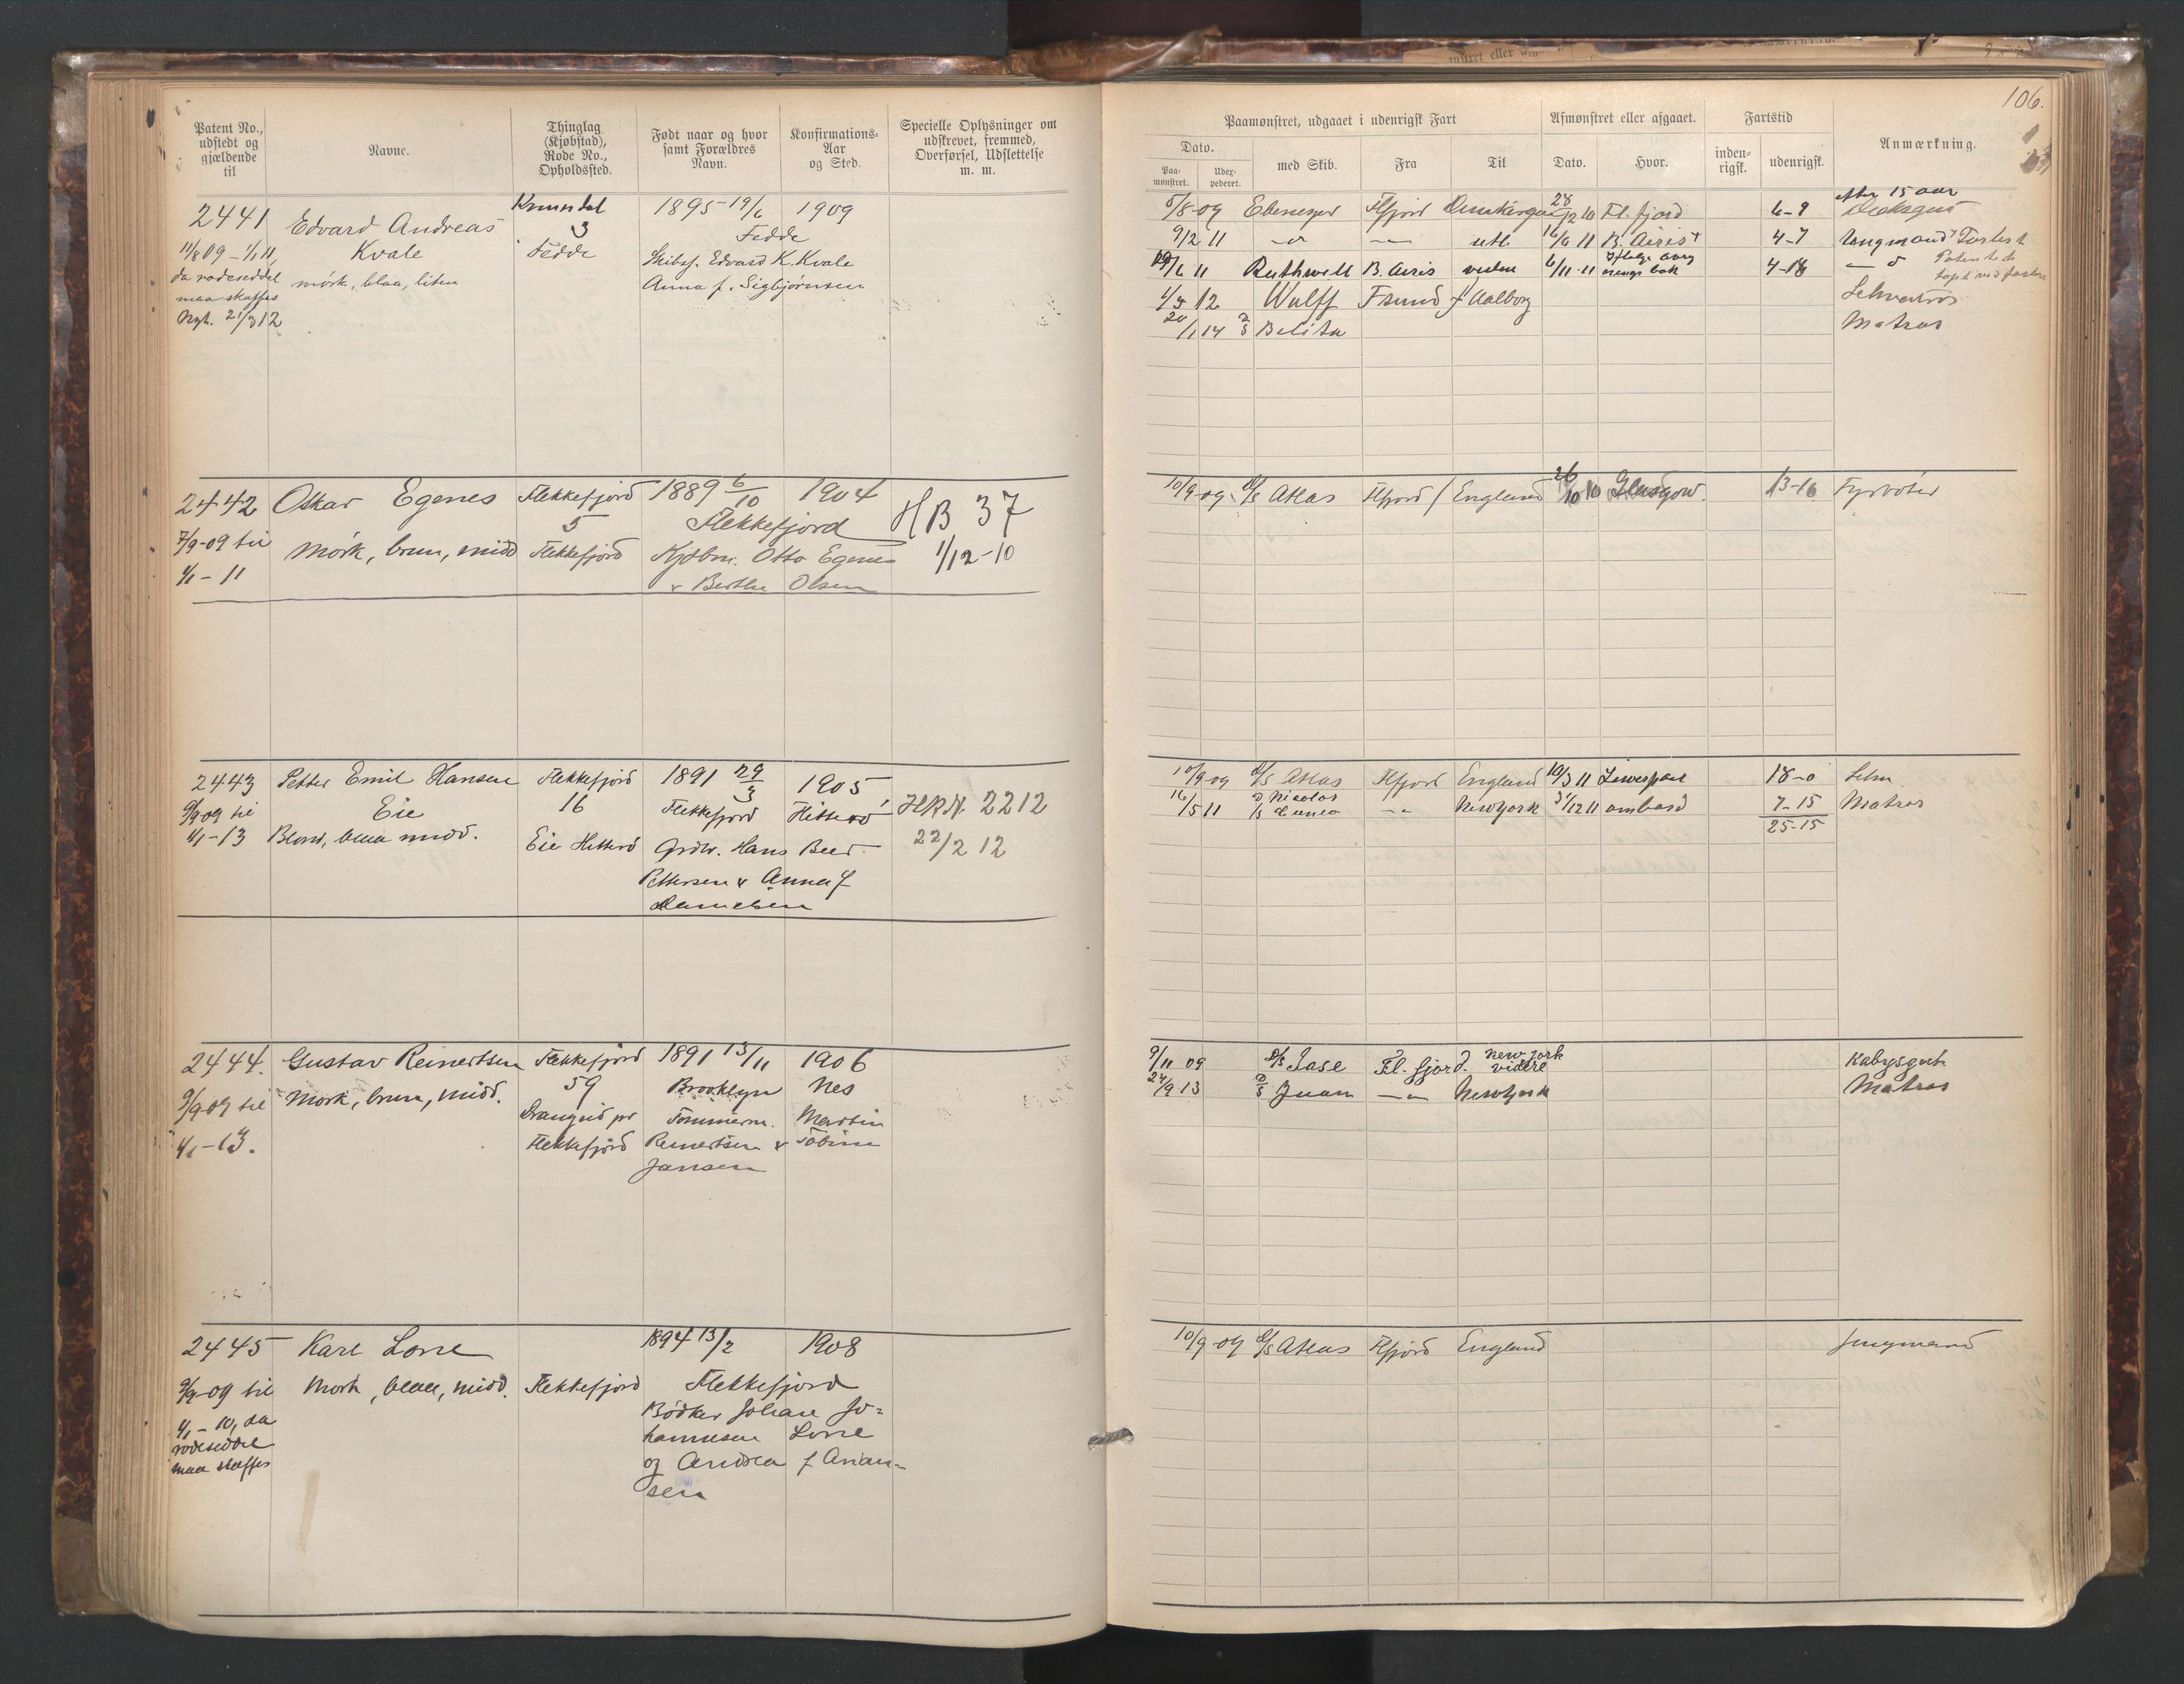 106.
Patent No., udstedt og gjældende til
Navne.
Thinglag (Kjøbstad), Rode No., Opholdssted.
Født naar og hvor samt Forældres Navn.
Konfirmations-Aar og Sted.
Specielle Oplysninger om udskrevet, fremmed, Overførsel, Udslettelse m. m.
Paamønstret, udgaaet i udenrigsk Fart
Afmønstret eller afgaaet.
Fartstid
Anmærkning.
Dato.
med Skib.
Fra
Til
Dato.
Hvor.
inden-rigsk.
udenrigsk.
Paa-mønstret.
Udex-pederet.
2441 Edvard Andreas
Kvale
3
Fedde
1895 19/6 1909
Fedde
11/8 09 - 1/1 11,
da rodeseddel
maa skaffes
mørk, blaa, liten
Skibsf. Edvard K. Kvale
Anna f. Sigbjørnsen
Ngh. 21/3 12
5/8-09 Ebenezer Flfjord 28/12 10 Fl. fjord 6-9
efter 15 aar
9/2 11 B. Airis 4-7
Ruthwell B. Airis 6/11-11 4-18
12 Wulff Fsund Aalborg
20/1 14 Belita Matros
2442 Oskar Egenes Flekkefjord 1889 6/10 1904
5 Flekkefjord
HB 37
7/9-09 til
1/1-11
Mørk, brun, midd Flekkefjord Kjøbm. Otto Egenes
1/12-10
& Berthe Olsen
10/9-09 D/S Atlas Flfjord England 26/10 10 Glasgow. 13-16 Fyrbøter
2443 Petter Emil Hansen Flekkefjord 1891 29/3 1905
9/9 09 til Eie 16 Flekkefjord Hitterø
2212
1/1-13 Blond, blaa midd. Eie Hitterø Grdbr. Hans Beer
22/2 12
Pettersen & Anna f
Danielsen
10/9-09 D/S Atlas Flfjord England 10/3 11 Liverpool 18-0
16/5 11 Nicolas Cuneo Newyork 31/12 11 ombord 7-15 Matros
25-15
2444. Gustav Reinertsen Flekkefjord 1891 13/11 1906
59 Brooklyn Nes
9/9-09 til Mørk, brun, midd.
Drangeid pr Tømmerm. Martin
1/1-13.
Flekkefjord Reinertsen & Tobine
Jansen
9/11 09 D/S Fl. fjord. New york videre
24/9 13 Juan Newyork Matros
2445 Karl Lorre 1894 13/2 1908
9/9-09 til Mørk, blaa, midd. Flekkefjord Flekkefjord
1/1-10, da
rodeseddel
maa skaffes
Bødker Johan Jo=
hannesen Lorre
og Andrea f Arian-
sen
10/9-09 D/S Atlas Flfjord England Jungmand